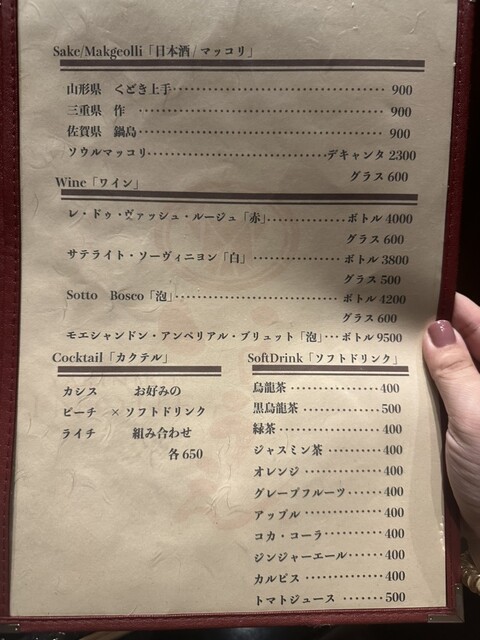 Sake/Makgeolli「日本酒/マッコリ」
山形県 くどき上手 900
三重県 作 900
佐賀県 鍋島 900
ソウルマッコリ デキャンタ 2300
グラス 600
Wine「ワイン」
レ・ドゥ・ヴァッシュ・ルージュ「赤」 ボトル 4000
グラス 600
サテライト・ソーヴィニヨン「白」 ボトル 3800
グラス 500
Sotto Bosco「泡」 ボトル 4200
グラス 600
モエシャンドン・アンペリアル・ブリュット「泡」 ボトル 9500
Cocktail「カクテル」
カシス お好みの
ピーチ × ソフトドリンク
ライチ 組み合わせ
各 650
SoftDrink「ソフトドリンク」
烏龍茶 400
黒烏龍茶 500
緑茶 400
ジャスミン茶 400
オレンジ 400
グレープフルーツ 400
アップル 400
コカ・コーラ 400
ジンジャーエール 400
カルピス 400
トマトジュース 500